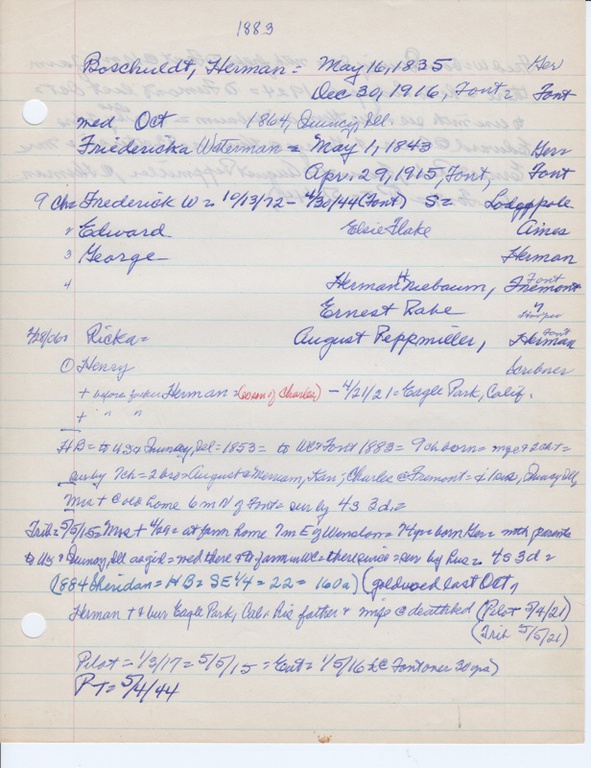 1883
Boschuldt, Herman = May 16, 1835 Ger
Dec 30, 1916, Font = Font
med Oct 1864, Quincy, Ill.
Friederiska Waterman = May 1, 1843 Ger
Apr. 29, 1915, Font, Font
9 Ch = Frederick W = 10/13/72 - 4/30/44 (Font) S = Lodgepole
2 Edward Elsie Flake Ames
3 George Herman
4 Herman H Niebaum, Font Fremont
Ernest Rabe " Hooper
Ricka = August Peppmiller, Font Herman
① Henry Scribner
+ before father Herman = (son of Charles) - 4/21/21 = Eagle Park, Calif.
+ " "
HB = to US & Quincy, Ill = 1853 = to WC & Font 1883 = 9 ch born = mge & 2 ch +
sur by 7 ch = 2 bro = August @ Merriam, Kan; Charles @ Fremont = 1 sis, Quincy Ill,
Mrs + @ old home 6 m N of Font = sur by 4 S 3 d =
Trib = 5/5/15 = Mrs + 4/29 = at farm home 7 m E of Winslow = 74 yr = born Ger = with parents
to US & Quincy, Ill as girl = med there & to farm in WC = there since = sur by hus = 4 S 3 d =
(1884 Sheridan = HB = SE 1/4 = 22 = 160 a) (gold wed last Oct,
Herman + & bur Eagle Park, Cal = his father & mge @ deathbed (Pilot 5/4/21)
(Trib 5/5/21)
Pilot = 1/3/17 = 5/5/15 = Ent = 1/5/16 (@ Fontoner 30 yrs)
PT = 5/4/44